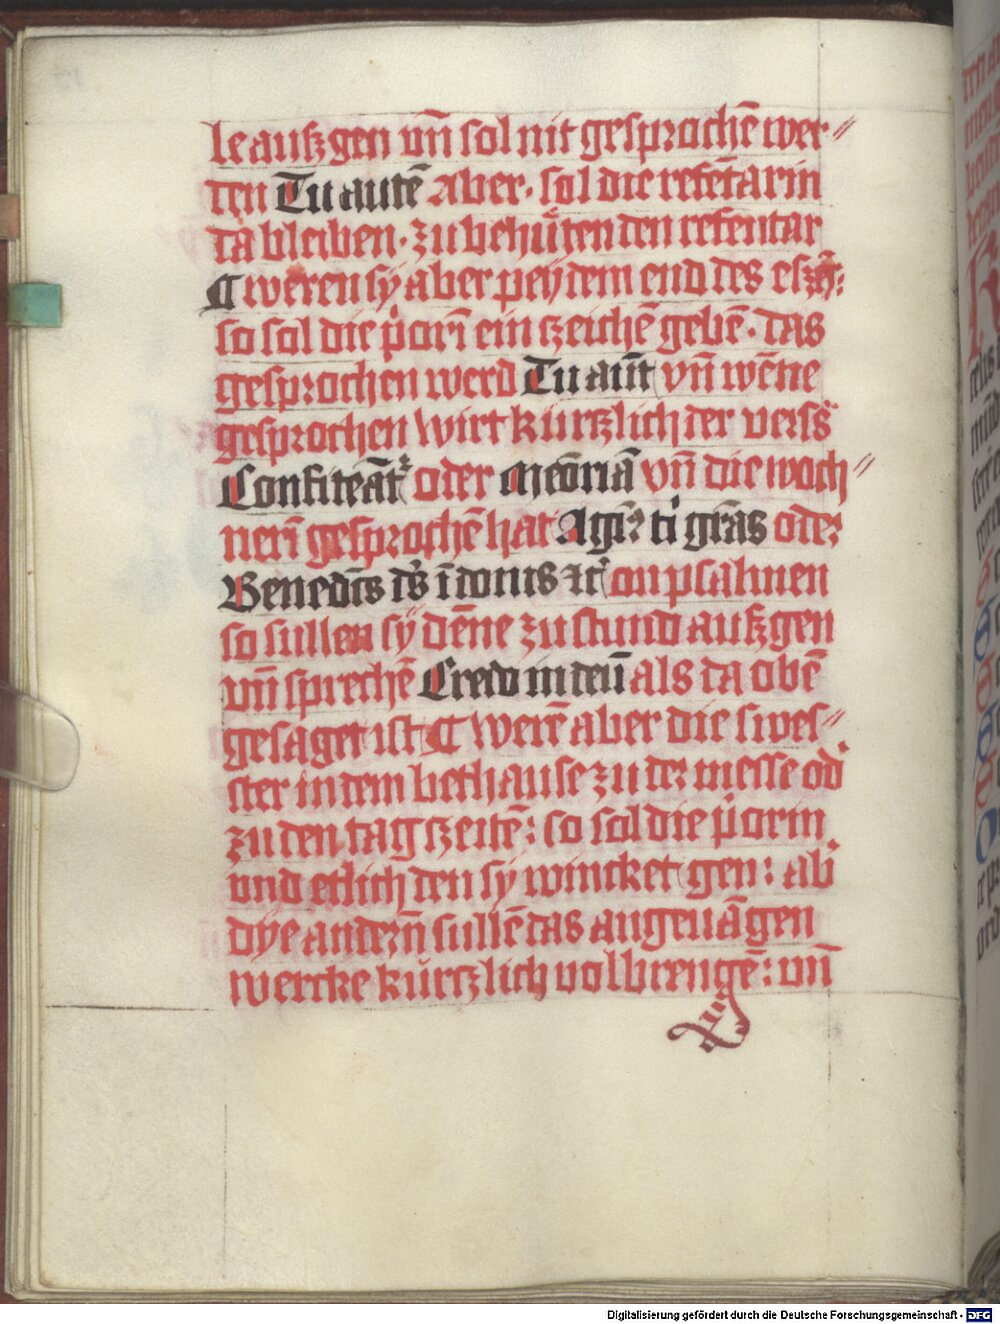 le ausz gen vn̄ sol nit gesprochē wer⸗
den Tu autē Aber · sol die refētarin
da bleiben · zu behüten den refentar
¶ weren sy aber pey dem end des eszēs:
so sol die porī ein szeichē gebē · das
gesprochen werd Tu aūt vn̄ wēne
gesprochen wirt kurtzlich der verss
Confiteāt oder Meōriā vn̄ die woch⸗
nerī gesprochē hat Agim̄ ti grās oder
Benedc̄s ds̄ ī donis ⁊c̄ on psalmen
so sullen sy dēne zu stund ausz gen
vn̄ sprechē Credo in deū als da obē
gesaget ist ¶ Werē aber die swes⸗
ster in dem bethause zu der messe od̄
zu den tag szeitē: so sol die porin
vnd etlich den sy wincket gen: ab̄
dye andern̄ sullē das angeuāgen
wercke kurtzlich volbrengē: vn̄